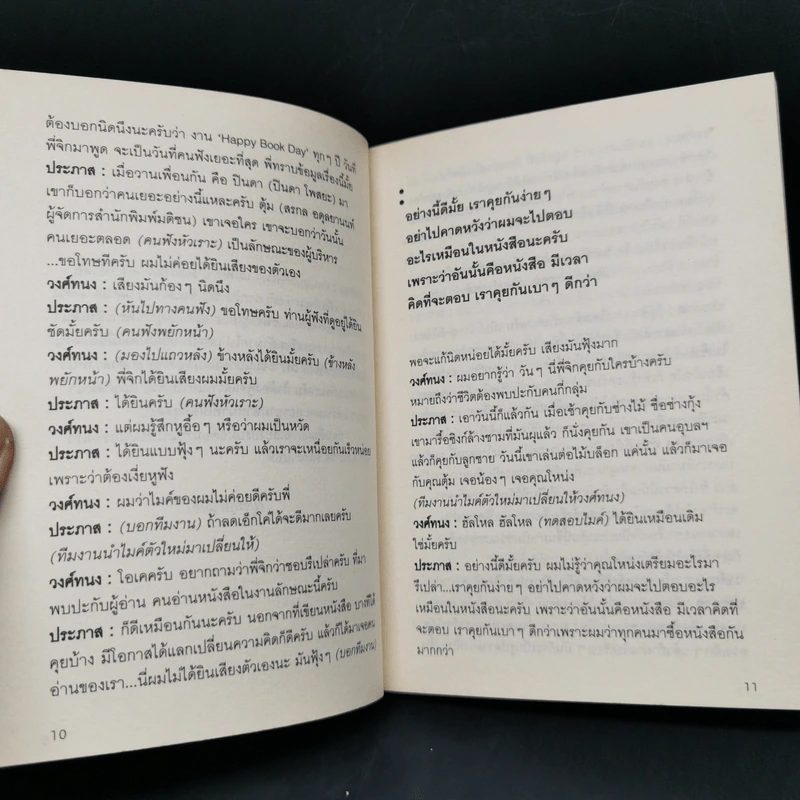 ต้องบอกนิดนึงนะครับว่า งาน 'Happy Book Day' ทุกๆ ปี วันที่
พี่จิกมาพูด จะเป็นวันที่คนฟังเยอะที่สุด พี่ทราบข้อมูลเรื่องนี้มั้ย
ประภาส : เมื่อวานเพื่อนกัน คือ ปินดา (ปินดา โพสยะ) มา
เขาก็บอกว่าคนเยอะอย่างนี้แหละครับ ตุ้ม (สรกล อดุลยานนท์
ผู้จัดการสำนักพิมพ์มติชน) เขาเจอใคร เขาจะบอกว่าวันนั้น
คนเยอะตลอด (คนฟังหัวเราะ) เป็นลักษณะของผู้บริหาร
...ขอโทษทีครับ ผมไม่ค่อยได้ยินเสียงของตัวเอง
วงศ์ทนง : เสียงมันก้องๆ นิดนึง
ประภาส : (หันไปทางคนฟัง) ขอโทษครับ ท่านผู้ฟังที่ดูอยู่ได้ยิน
ชัดมั้ยครับ (คนฟังพยักหน้า)
วงศ์ทนง : (มองไปแถวหลัง) ข้างหลังได้ยินมั้ยครับ (ข้างหลัง
พยักหน้า) พี่จิกได้ยินเสียงผมมั้ยครับ
ประภาส : ได้ยินครับ (คนฟังหัวเราะ)
วงศ์ทนง : แต่ผมรู้สึกหูอื้อๆ หรือว่าผมเป็นหวัด
ประภาส : ได้ยินแบบฟุ้งๆ นะครับ แล้วเราจะเหนื่อยกันเร็วหน่อย
เพราะว่าต้องเงี่ยหูฟัง
วงศ์ทนง : ผมว่าไมค์ของผมไม่ค่อยดีครับพี่
ประภาส : (บอกทีมงาน) ถ้าลดเอ็กโค่ได้จะดีมากเลยครับ
(ทีมงานนำไมค์ตัวใหม่มาเปลี่ยนให้)
วงศ์ทนง : โอเคครับ อยากถามว่าพี่จิกว่าชอบรึเปล่าครับ ที่มา
พบปะกับผู้อ่าน คนอ่านหนังสือในงานลักษณะนี้ครับ
ประภาส : ก็ดีเหมือนกันนะครับ นอกจากที่เขียนหนังสือ บางทีได้
คุยบ้าง มีโอกาสได้แลกเปลี่ยนความคิดก็ดีครับ แล้วก็ได้มาเจอคน
อ่านของเรา...นี่ผมไม่ได้ยินเสียงตัวเองนะ มันฟุ้งๆ (บอกทีมงาน)
10
:
อย่างนี้ดีมั้ย เราคุยกันง่ายๆ
อย่าไปคาดหวังว่าผมจะไปตอบ
อะไรเหมือนในหนังสือนะครับ
เพราะว่าอันนั้นคือหนังสือ มีเวลา
คิดที่จะตอบ เราคุยกันเบาๆ ดีกว่า
พอจะแก้นิดหน่อยได้มั้ยครับ เสียงมันฟุ้งมาก
วงศ์ทนง : ผมอยากรู้ว่า วันๆ นี่พี่จิกคุยกับใครบ้างครับ
หมายถึงว่าชีวิตต้องพบปะกับคนกี่กลุ่ม
ประภาส : เอาวันนี้ก็แล้วกัน เมื่อเช้าคุยกับช่างไม้ ชื่อช่างกุ้ง
เขามารื้อซิงก์ล้างชามที่มันผุแล้ว ก็นั่งคุยกัน เขาเป็นคนอุบลฯ
แล้วก็คุยกับลูกชาย วันนี้เขาเล่นต่อไม้บล็อก แค่นั้น แล้วก็มาเจอ
กับคุณตุ้ม เจอน้องๆ เจอคุณโหน่ง
(ทีมงานนำไมค์ตัวใหม่มาเปลี่ยนให้วงศ์ทนง)
วงศ์ทนง : ฮัลโหล ฮัลโหล (ทดสอบไมค์) ได้ยินเหมือนเดิม
ใช่มั้ยครับ
ประภาส : อย่างนี้ดีมั้ยครับ ผมไม่รู้ว่าคุณโหน่งเตรียมอะไรมา
รึเปล่า...เราคุยกันง่ายๆ อย่าไปคาดหวังว่าผมจะไปตอบอะไร
เหมือนในหนังสือนะครับ เพราะว่าอันนั้นคือหนังสือ มีเวลาคิดที่
จะตอบ เราคุยกันเบาๆ ดีกว่าเพราะผมว่าทุกคนมาซื้อหนังสือกัน
มากกว่า
11